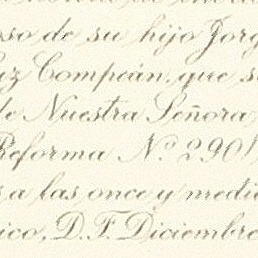 so de su hijo Jorg
uz Compeán, que s
de Nuestra Señora,
Reforma Nº 290
s a las once y medi
ico, D.F. Diciembre